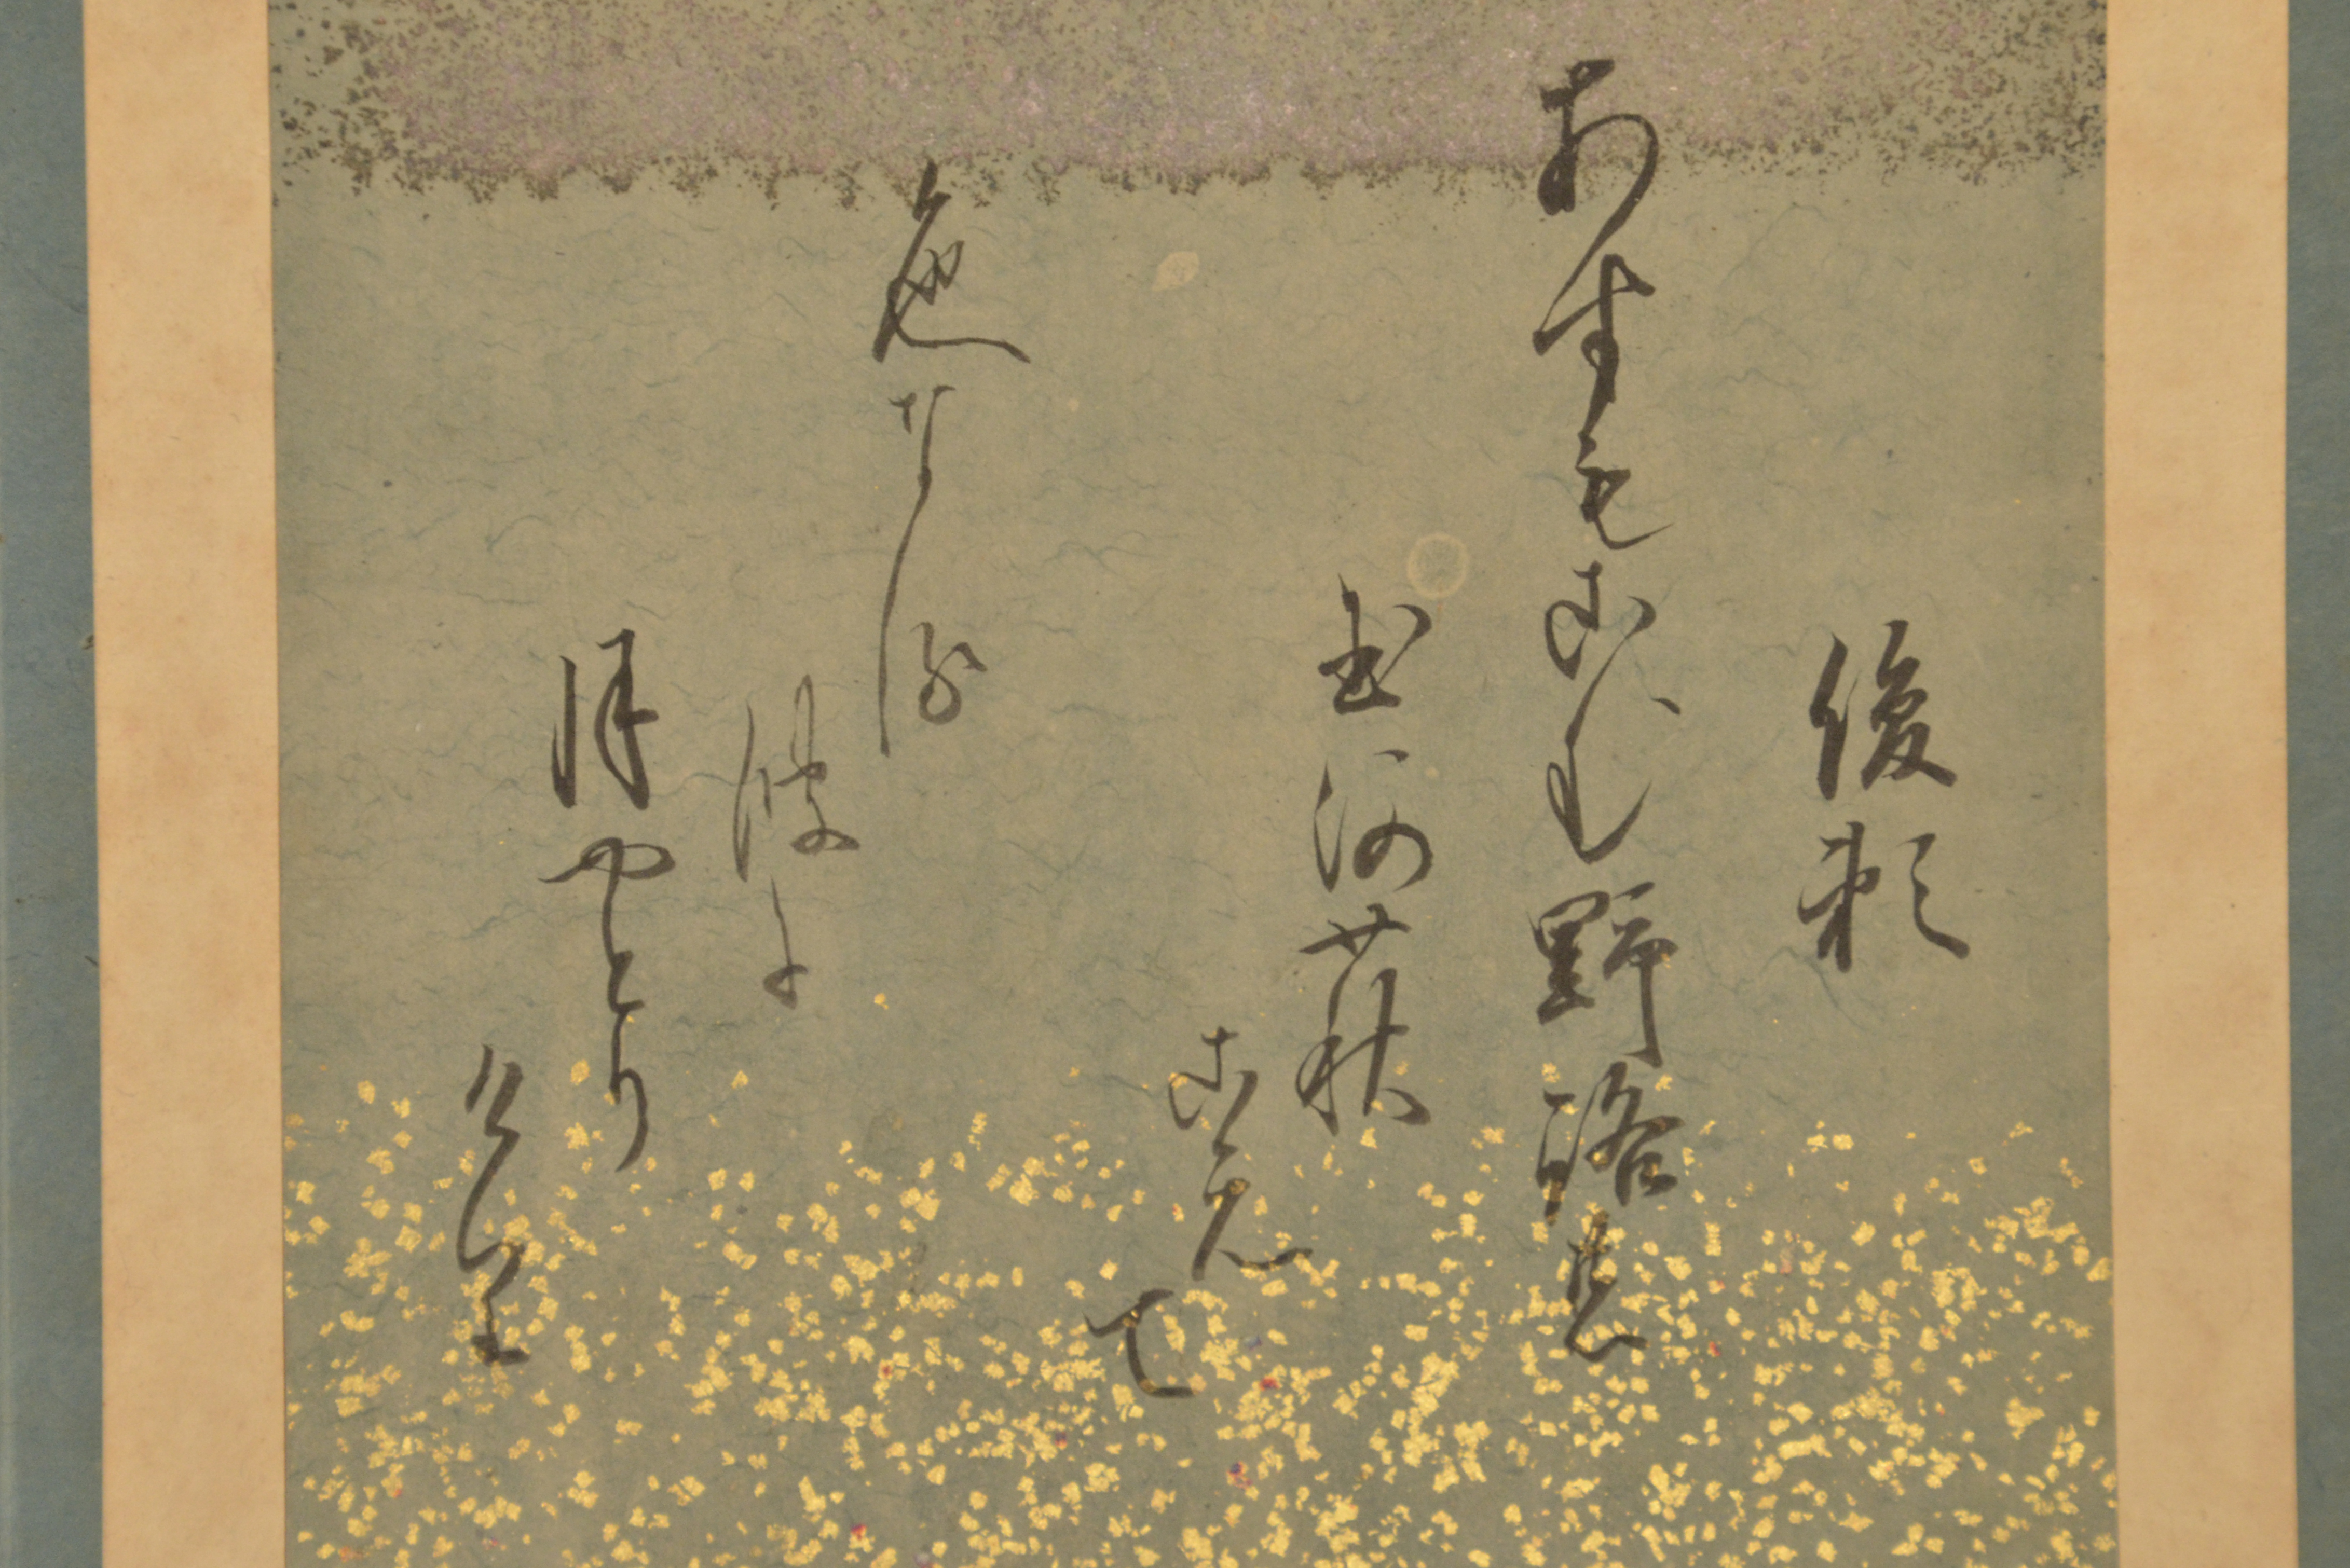 俊頼
あすもこむ野路の
玉河萩
こえて
色なる
波に
月やとり
けり